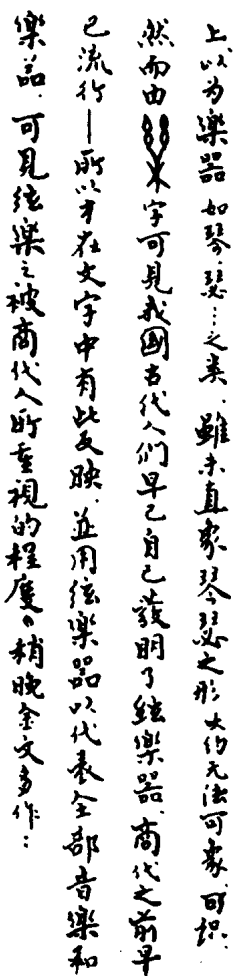 上以为樂器如琴、瑟…之类，雖未直象琴瑟之形大约无法可象，可識。
然而由字可見我國古代人们早已自己發明了絃樂器，商代之前早
已流行——所以才在文字中有此反映，並用絃樂器以代表全部音樂和
樂器，可見絃樂之被商代人所重視的程度。稍晚金文多作：